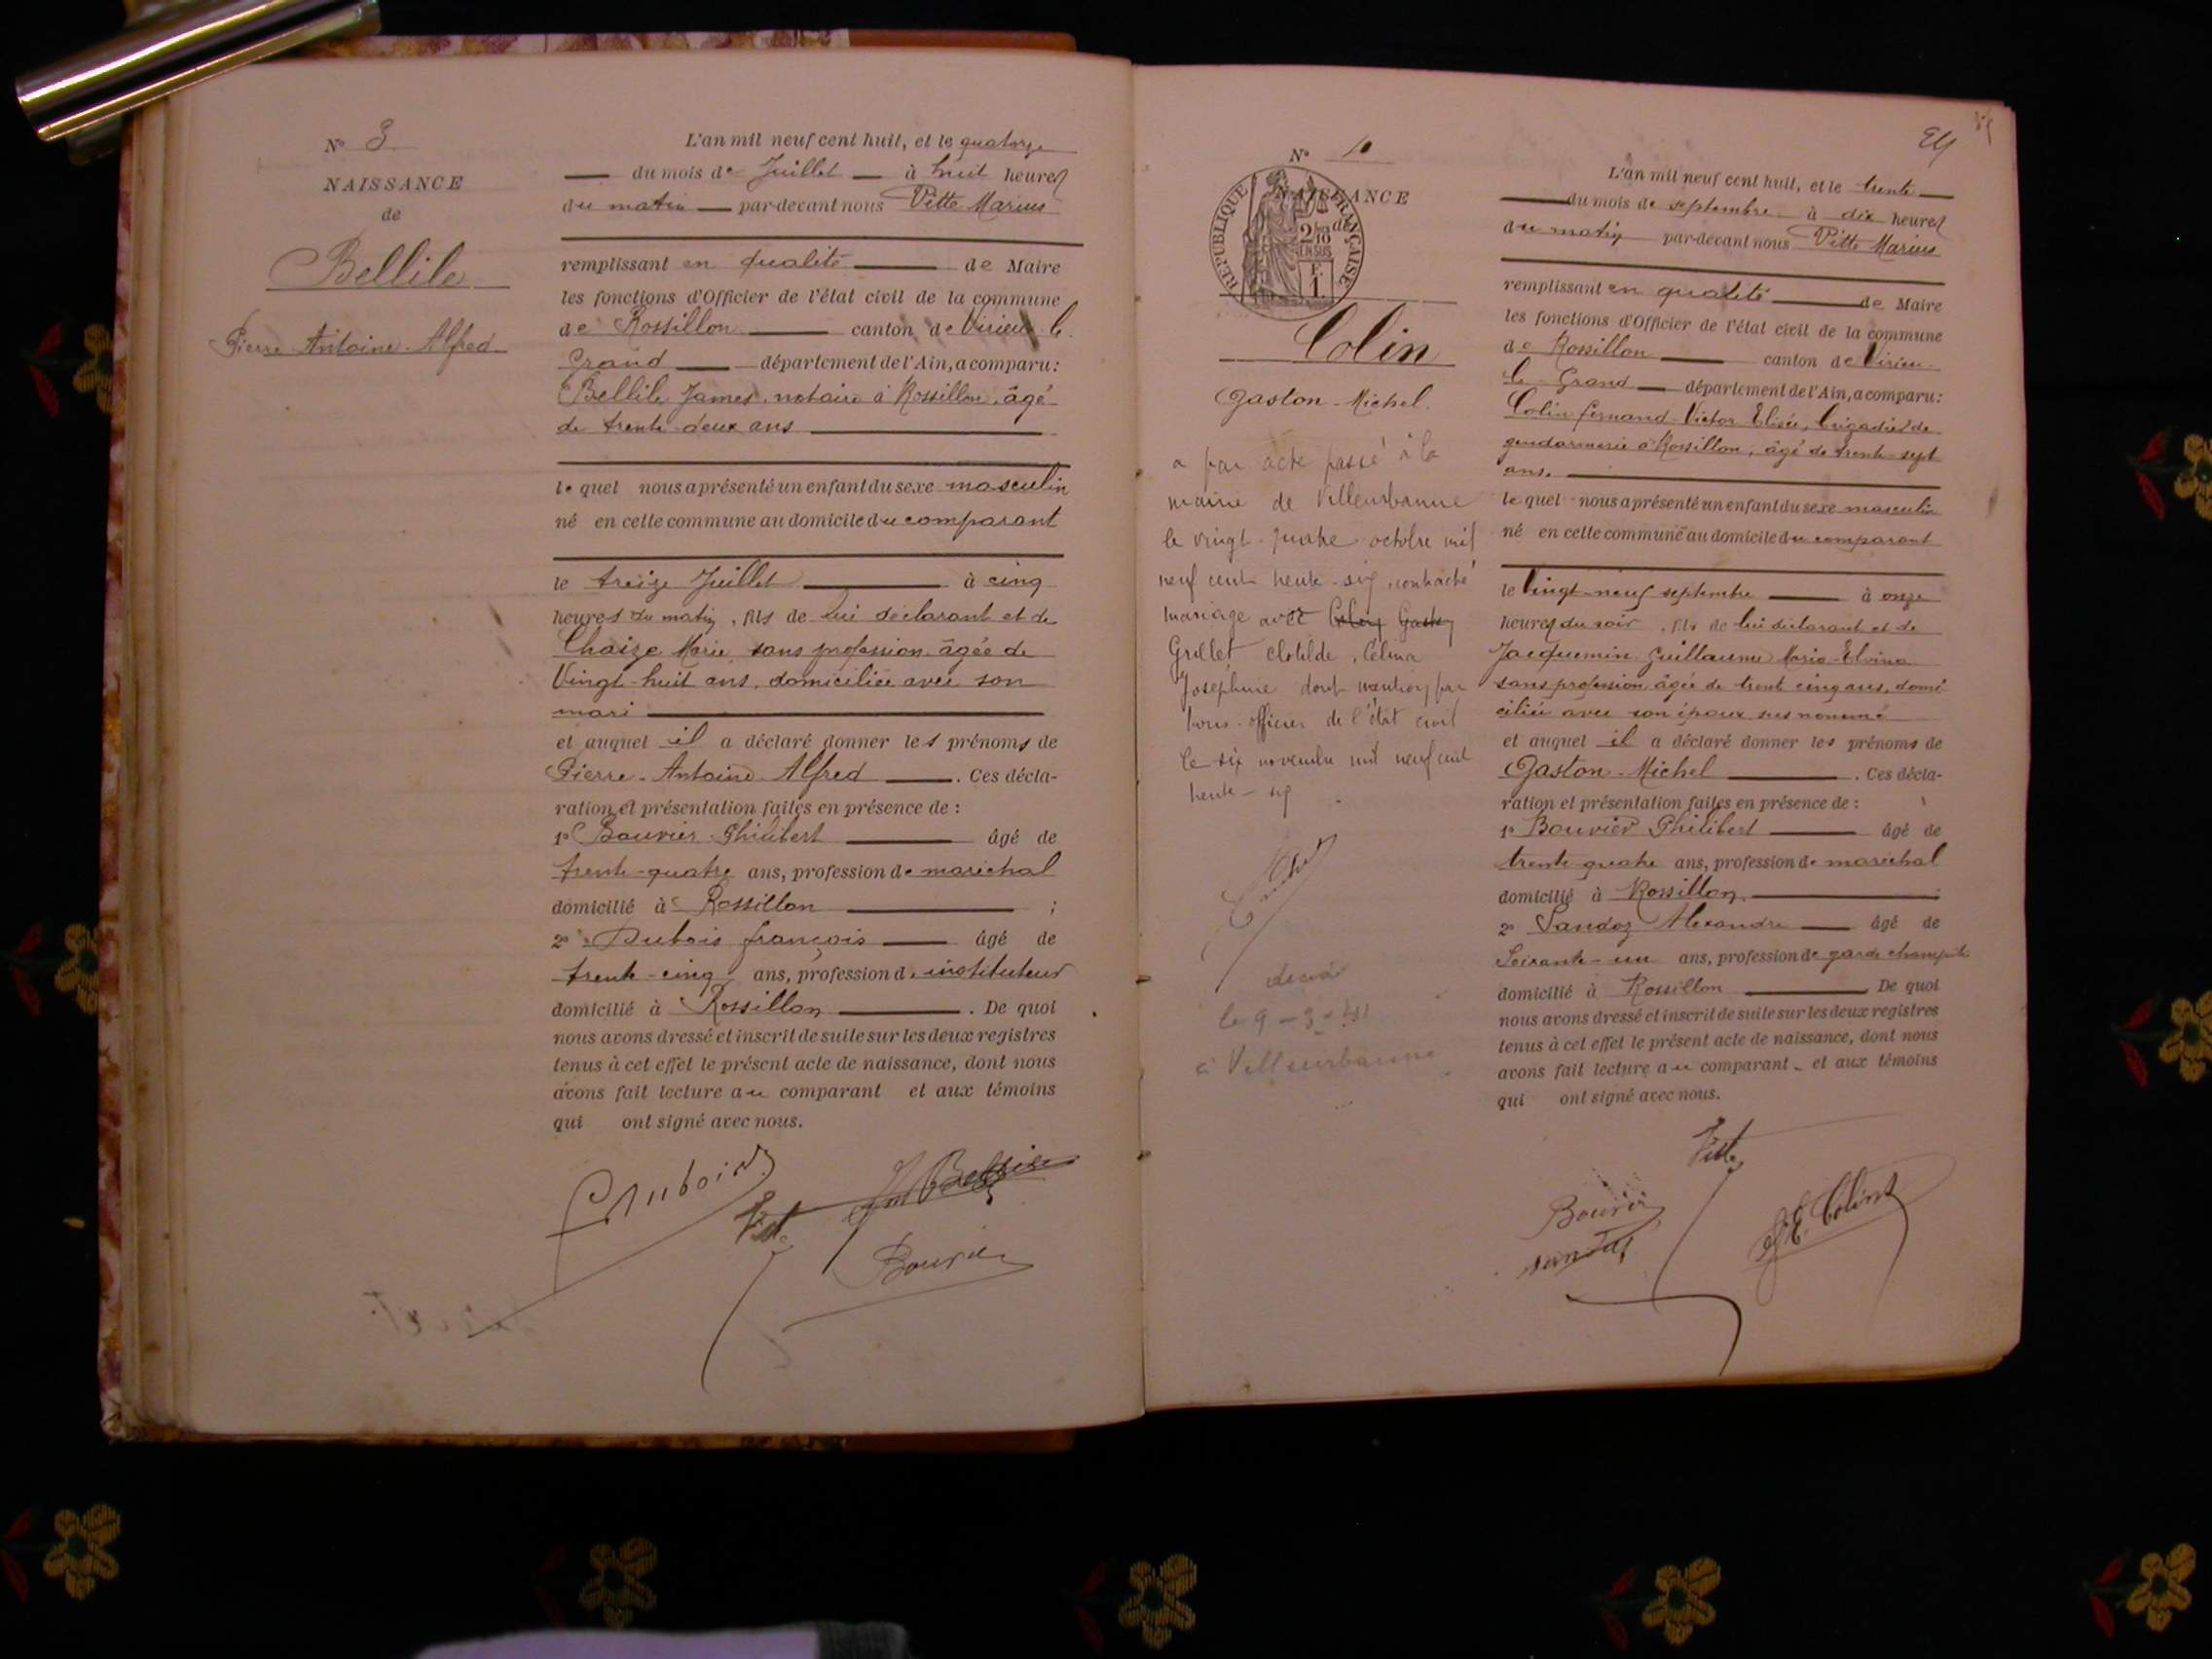 N° 3
NAISSANCE
de
Bellile
Pierre Antoine Alfred
L'an mil neuf cent huit, et le quatorze
du mois de Juillet à huit heures
du matin par-devant nous Vitte Marius
remplissant en qualité de Maire
les fonctions d'Officier de l'état civil de la commune
de Rossillon canton de Virieu-le
Grand département de l'Ain, a comparu :
Bellile James, notaire à Rossillon, âgé
de trente deux ans
lequel nous a présenté un enfant du sexe masculin
né en cette commune au domicile du comparant
le treize Juillet à cinq
heures du matin, fils de lui déclarant et de
Chaize Marie, sans profession, âgée de
Vingt-huit ans, domiciliée avec son
mari
et auquel il a déclaré donner les prénoms de
Pierre-Antoine Alfred. Ces décla-
ration et présentation faites en présence de :
1° Bouvier Philibert âgé de
trente-quatre ans, profession de maréchal
domicilié à Rossillon ;
2° Dubois françois âgé de
trente-cinq ans, profession d'instituteur
domicilié à Rossillon. De quoi
nous avons dressé et inscrit de suite sur les deux registres
tenus à cet effet le présent acte de naissance, dont nous
avons fait lecture au comparant et aux témoins
qui ont signé avec nous.
F Dubois
Bellile
Vitte
Bouvier
N° 10
NAISSANCE
de
RÉPUBLIQUE FRANÇAISE
2/10
EN SUS
F.
1
Colin
Gaston-Michel.
a par acte passé à la
mairie de Villeurbanne
le vingt-quatre octobre mil
neuf cent trente-six, contracté
mariage avec Colin Gaston
Grellet Clotilde, Célina
Joséphine dont mention par
nous officier de l'état civil
le six novembre mil neuf cent
trente-six
décédé
le 9-3-
à Villeurbanne
L'an mil neuf cent huit, et le trente
du mois de septembre à dix heures
du matin par-devant nous Vitte Marius
remplissant en qualité de Maire
les fonctions d'Officier de l'état civil de la commune
de Rossillon canton de Virieu-
le-Grand département de l'Ain, a comparu :
Colin fernand-Victor Elisée, brigadier de
gendarmerie à Rossillon, âgé de trente-sept
ans,
lequel nous a présenté un enfant du sexe masculin
né en cette commune au domicile du comparant
le Vingt-neuf septembre à onze
heures du soir, fils de lui déclarant et de
Jacquemin Guillaume Marie-Elvina
sans profession, âgée de trente cinq ans, domi
ciliée avec son époux susnommé
et auquel il a déclaré donner les prénoms de
Gaston-Michel. Ces décla-
ration et présentation faites en présence de :
1° Bouvier Philibert âgé de
trente quatre ans, profession de maréchal
domicilié à Rossillon ;
2° Sandoz Alexandre âgé de
Soixante-un ans, profession de garde champêtre
domicilié à Rossillon De quoi
nous avons dressé et inscrit de suite sur les deux registres
tenus à cet effet le présent acte de naissance, dont nous
avons fait lecture au comparant et aux témoins
qui ont signé avec nous.
Vitte
Bouvier
Sandoz
Colin